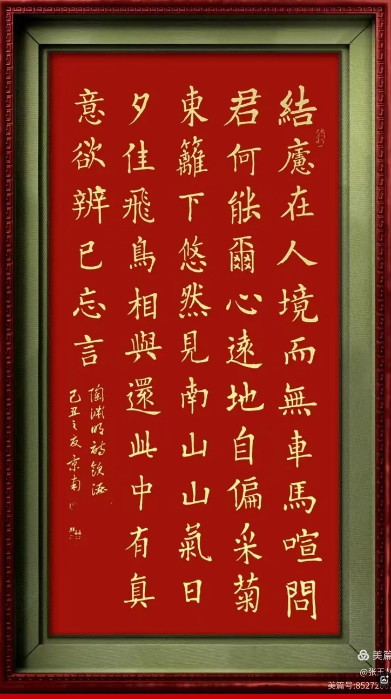 結廬在人境而無車馬喧問
君何能爾心遠地自偏采菊
東籬下悠然見南山山氣日
夕佳飛鳥相與還此中有真
意欲辨已忘言
陶淵明詩飲酒
己丑之 京南
美篇
美篇号:8527